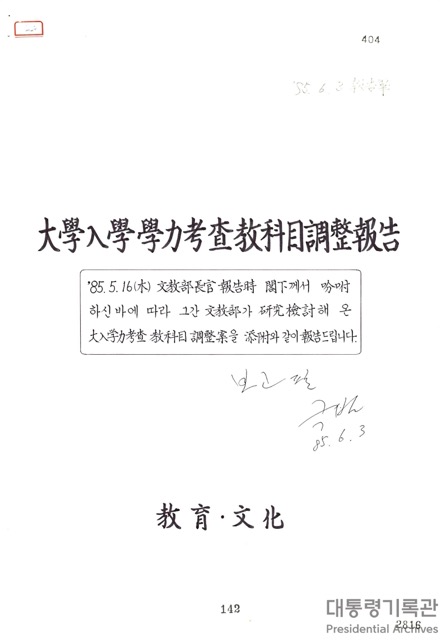 404
'85. 6. 3
大學入學學力考査教科目調整報告
'85.5.16(水) 文教部長官 報告時 閣下께서 吩咐
하신바에 따라 그간 文教部가 研究檢討해 온
大入學力考査 教科目 調整案을 添附와 같이 報告드립니다.
보고필
85. 6. 3
教育·文化
142
대통령기록관
2816
Presidential Archives